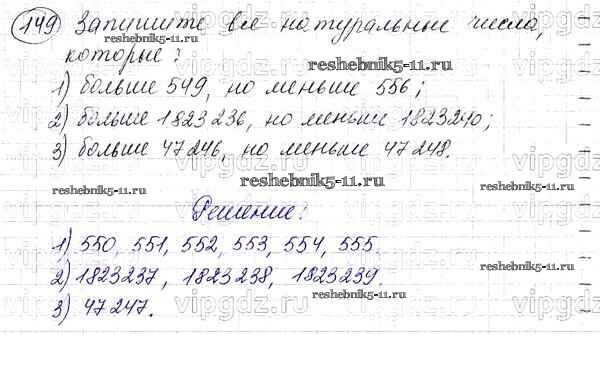 149 Запишите все натуральные числа,
которые:
1) больше 549, но меньше 556;
2) больше 1823236, но меньше 1823240;
3) больше 47246, но меньше 47248.
Решение:
1) 550, 551, 552, 553, 554, 555.
2) 1823237, 1823238, 1823239.
3) 47247.
reshebnik5-11.ru
vipgdz.ru